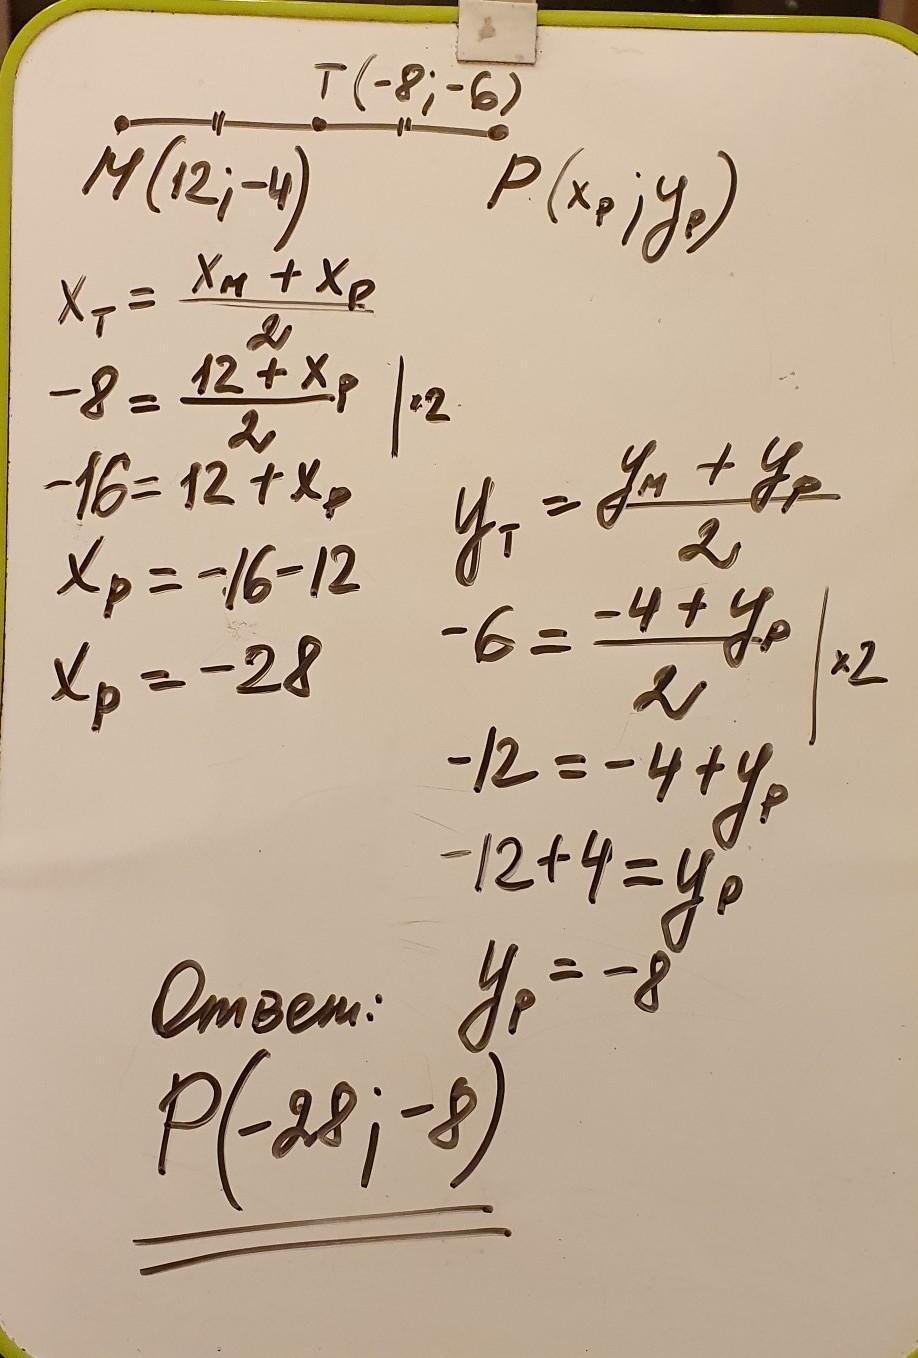 T(-8;-6)
M(12;-4)
P(xₚ;yₚ)
x_T = (x_M + x_P)/2
-8 = (12 + x_P)/2 | ×2
-16 = 12 + x_P
x_P = -16 - 12
x_P = -28
y_T = (y_M + y_P)/2
-6 = (-4 + y_P)/2 | ×2
-12 = -4 + y_P
-12 + 4 = y_P
y_P = -8
Ответ:
P(-28;-8)